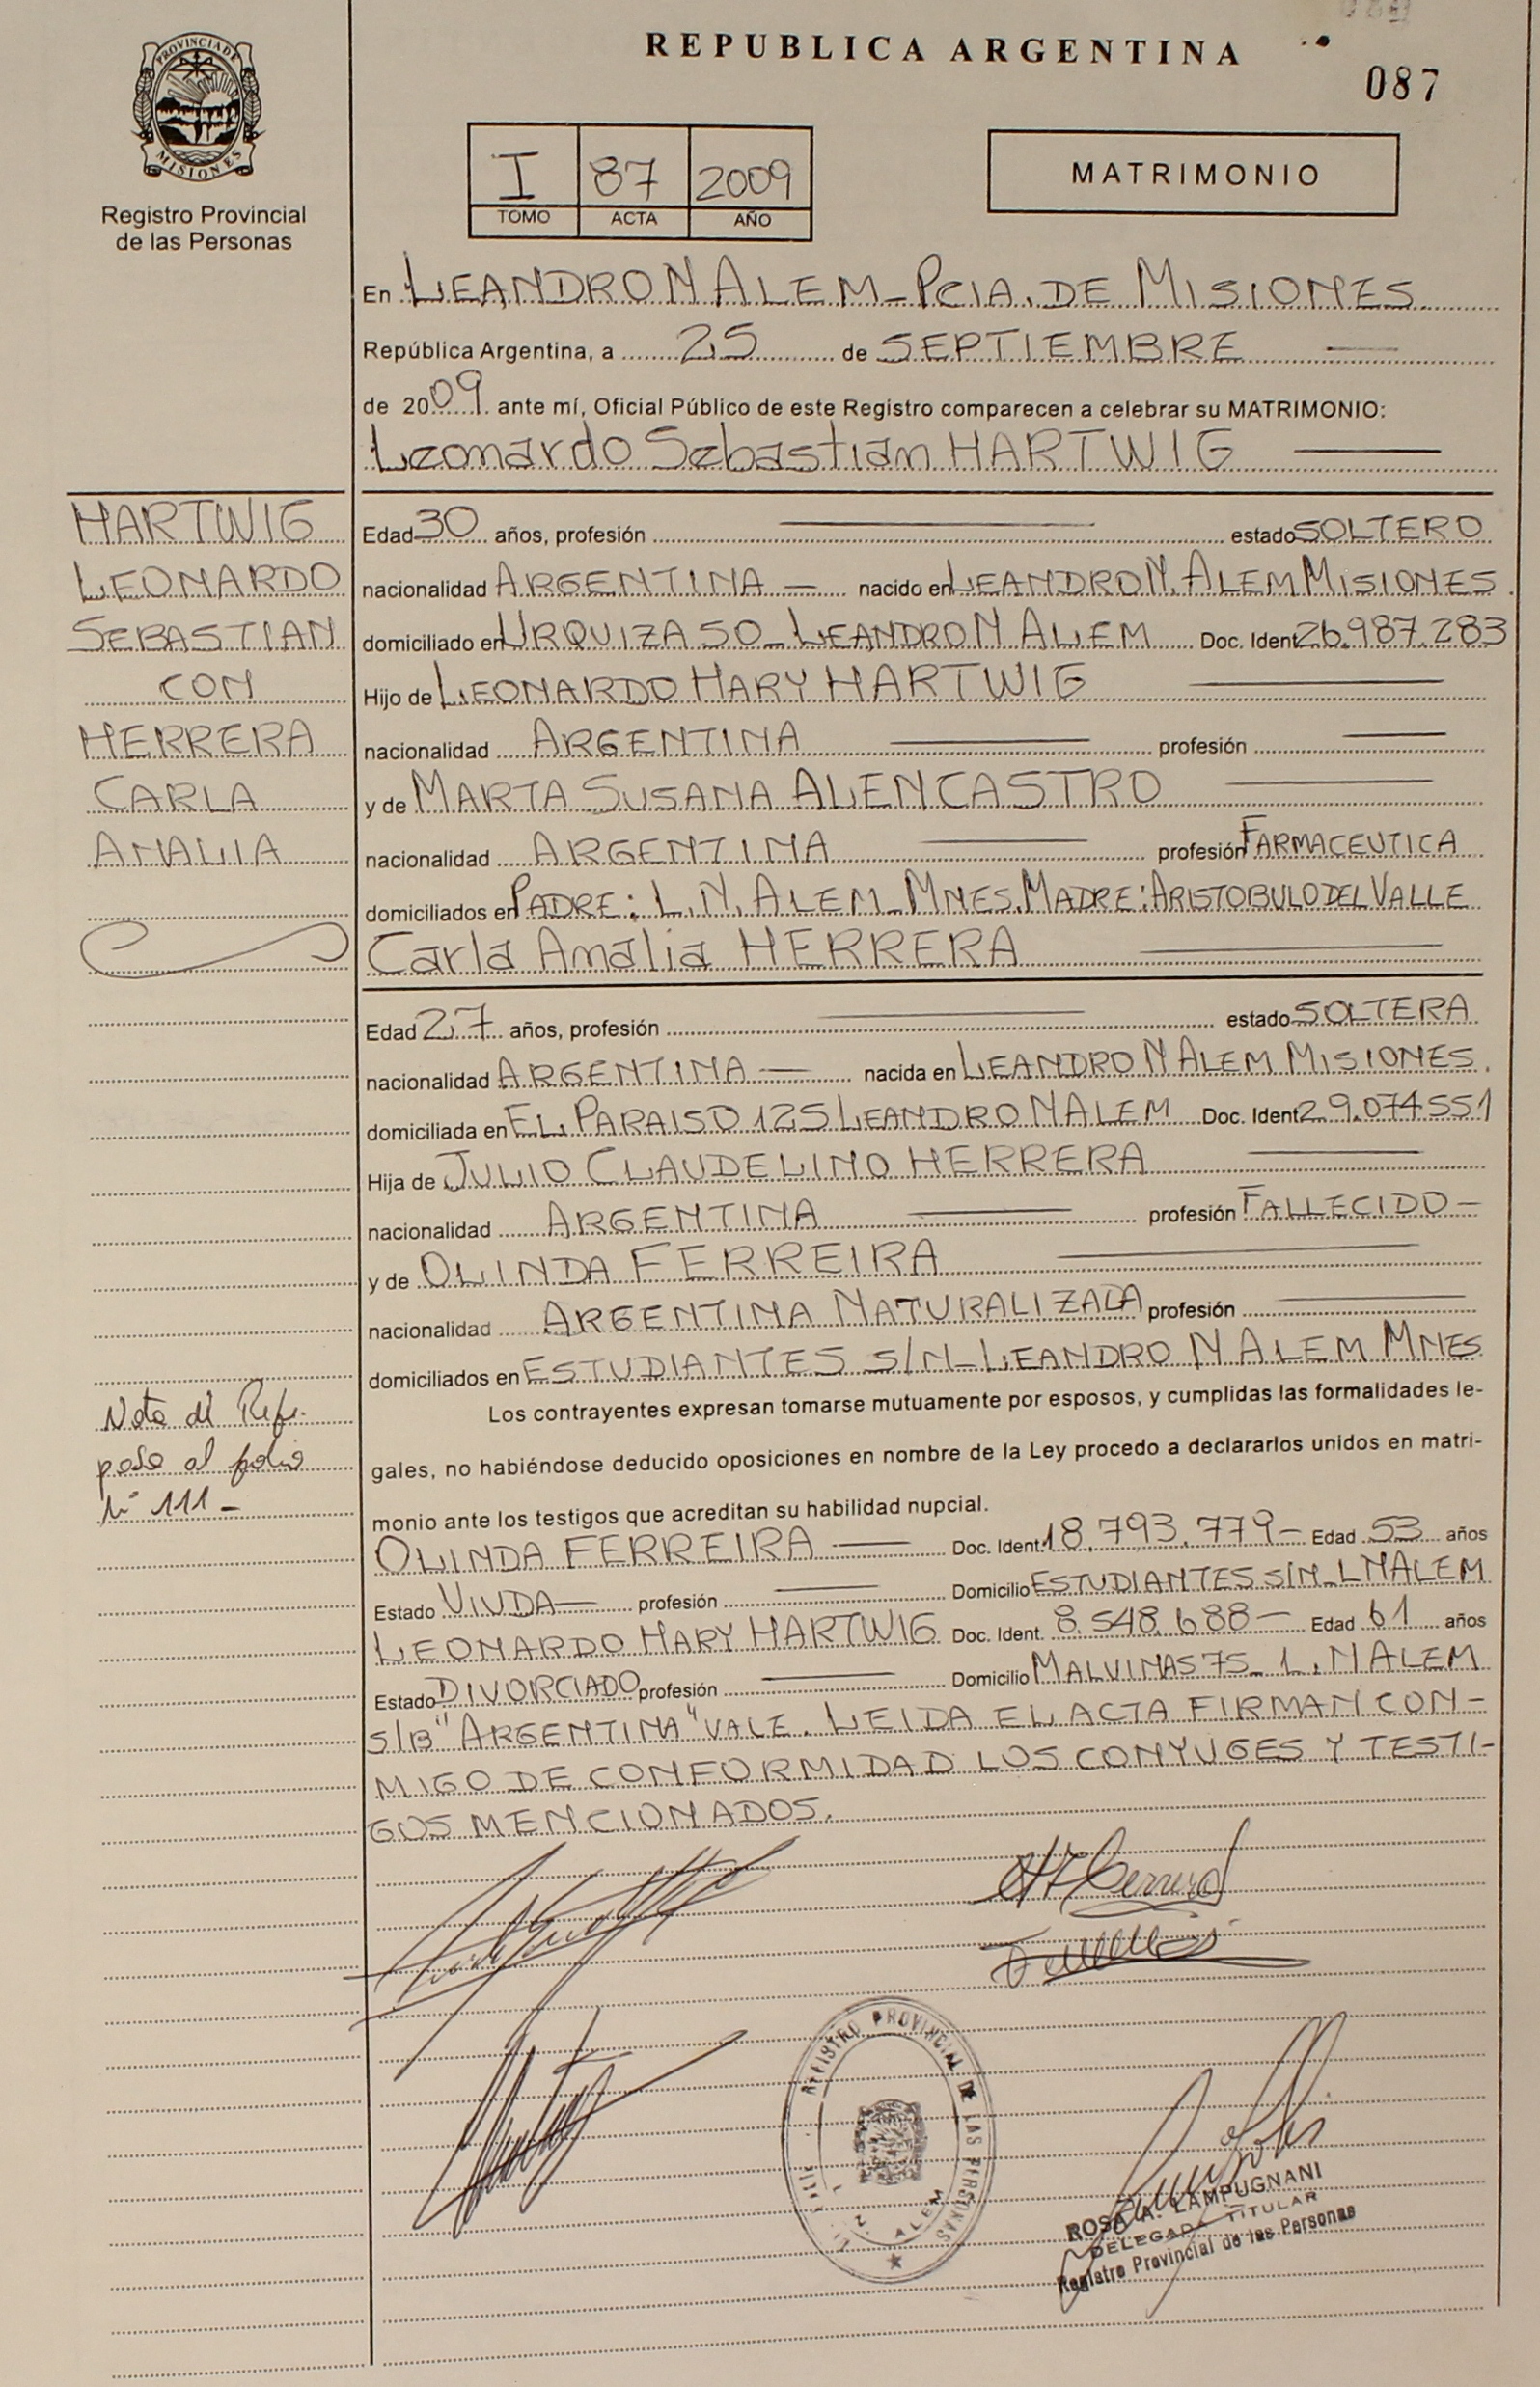 REPUBLICA ARGENTINA
087
PROVINCIA DE
MISIONES
Registro Provincial
de las Personas
I 87 2009
TOMO ACTA AÑO
MATRIMONIO
En LEANDRO N ALEM - PCIA. DE MISIONES
República Argentina, a 25 de SEPTIEMBRE
de 2009 ante mí, Oficial Público de este Registro comparecen a celebrar su MATRIMONIO:
Leonardo Sebastian HARTWIG
HARTWIG
LEONARDO
SEBASTIAN
CON
HERRERA
CARLA
ANALIA
Edad 30 años, profesión — estado SOLTERO
nacionalidad ARGENTINA — nacido en LEANDRO N. ALEM MISIONES.
domiciliado en URQUIZA 50 - LEANDRO N ALEM Doc. Ident 26.987.283
Hijo de LEONARDO HARY HARTWIG —
nacionalidad ARGENTINA — profesión —
y de MARTA SUSANA ALENCASTRO —
nacionalidad ARGENTINA — profesión FARMACEUTICA
domiciliados en PADRE: L.N. ALEM - MNES. MADRE: ARISTOBULO DEL VALLE
Carla Analia HERRERA —
Edad 27 años, profesión — estado SOLTERA
nacionalidad ARGENTINA — nacida en LEANDRO N ALEM MISIONES.
domiciliada en EL PARAISO 125 LEANDRO N ALEM Doc. Ident 29.074.551
Hija de JULIO CLAUDELINO HERRERA —
nacionalidad ARGENTINA — profesión FALLECIDO —
y de OLINDA FERREIRA —
nacionalidad ARGENTINA NATURALIZADA profesión —
domiciliados en ESTUDIANTES S/N - LEANDRO N ALEM MNES
Los contrayentes expresan tomarse mutuamente por esposos, y cumplidas las formalidades le-
gales, no habiéndose deducido oposiciones en nombre de la Ley procedo a declararlos unidos en matri-
monio ante los testigos que acreditan su habilidad nupcial.
Nota de Refe.
paso al folio
N° 111 -
OLINDA FERREIRA — Doc. Ident. 18.793.779 - Edad 53 años
Estado VIUDA — profesión — Domicilio ESTUDIANTES S/N - L N ALEM
LEONARDO HARY HARTWIG Doc. Ident. 8.548.688 - Edad 61 años
Estado DIVORCIADO profesión — Domicilio MALVINAS 75 - L. N ALEM
S/B "ARGENTINA" VALE. LEIDA EL ACTA FIRMAN CON-
MIGO DE CONFORMIDAD LOS CONYUGES Y TESTI-
GOS MENCIONADOS.
REGISTRO PROVINCIAL DE LAS PERSONAS
L. N. ALEM
ROSA A. LAMPUGNANI
DELEGADA TITULAR
Registro Provincial de las Personas